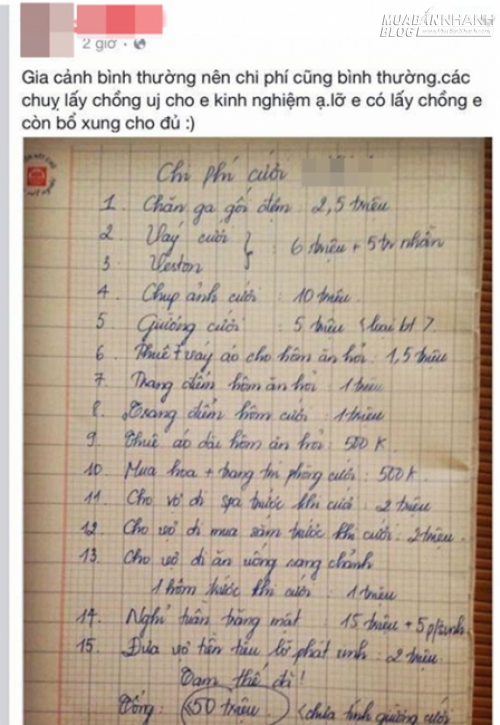 MUABANNHANH
BLOG
2 giờ
Gia cảnh bình thường nên chi phí cũng bình thường.các
chuỵ lấy chồng uj cho e kinh nghiệm ạ.lỡ e có lấy chồng e
còn bổ xung cho đủ :)
Chi phí cưới
1. Chăn ga gối đệm 2,5 triệu
2. Váy cưới
} : 6 triệu + 5tr nhẫn
3. Veston
4. Chụp ảnh cưới : 10 triệu
5. Giường cưới : 5 triệu <loại bt>.
6. Thuê váy áo cho hôm ăn hỏi : 1,5 triệu
7. Trang điểm hôm ăn hỏi : 1 triệu
8. Trang điểm hôm cưới : 1 triệu
9. Thuê áo dài hôm ăn hỏi : 500 K.
10. Mua hoa + trang trí phòng cưới : 500K.
11. Cho vợ đi spa trước khi cưới : 2 triệu
12. Cho vợ đi mua sắm trước khi cưới : 2 triệu.
13. Cho vợ đi ăn uống sang chảnh
1 hôm trước khi cưới : 1 triệu
14. Nghỉ tuần trăng mật : 15 triệu + 5 p/sinh
15. Đưa vợ tiền tiêu lỡ phát sinh : 2 triệu.
Tạm thế đã!
Tổng : 50 triệu. (chưa tính giường cưới